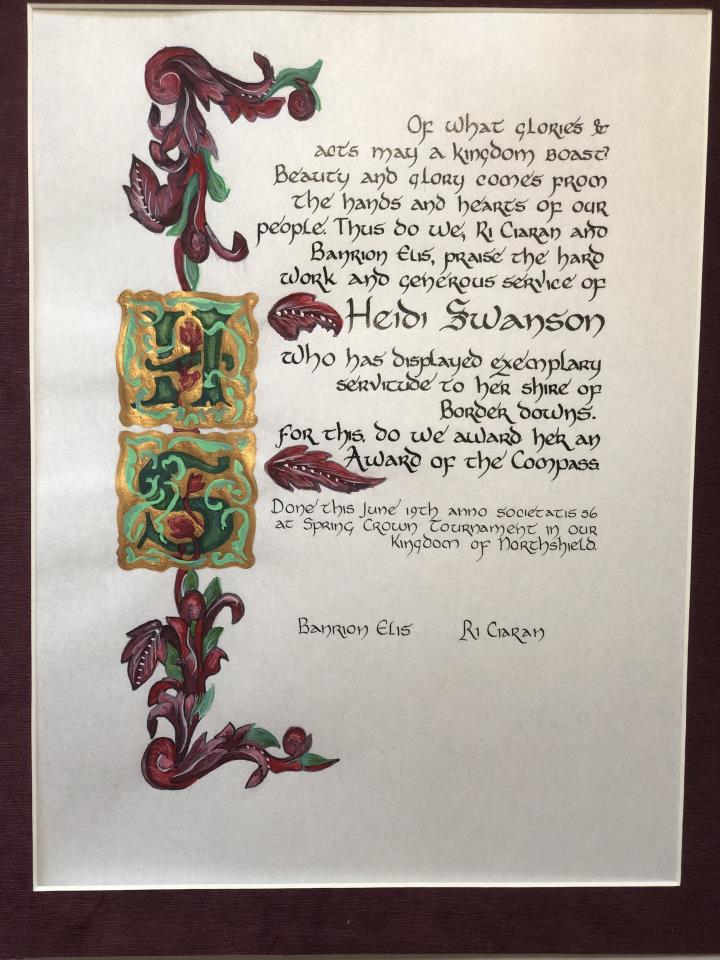 Of what glories &
acts may a kingdom boast?
Beauty and glory comes from
the hands and hearts of our
people. Thus do we, Ri Ciaran and
Banrion Elis, praise the hard
work and generous service of
Heidi Swanson
who has displayed exemplary
servitude to her shire of
Border downs.
For this, do we award her an
Award of the Compass
Done this June 19th anno societatis 56
at Spring Crown Tournament in our
Kingdom of Northshield.
H
S
Banrion Elis Ri Ciaran